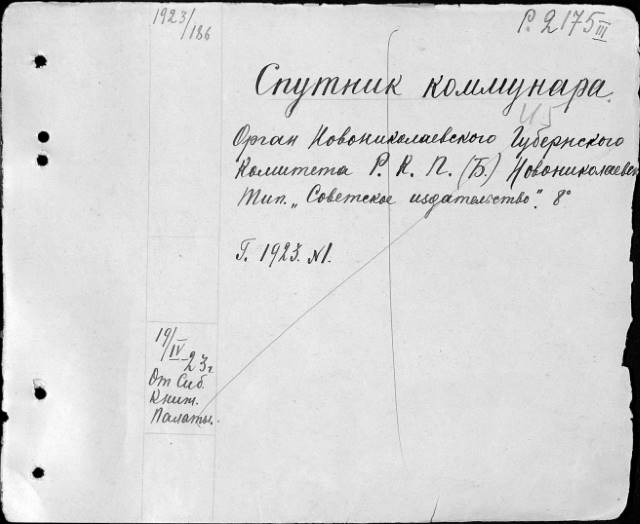 1923/186
Р. 2175 III
Спутник коммунара.
Орган Новониколаевского Губернского
Комитета Р. К. П. (Б.) Новониколаевск
Тип. „Советское издательство". 8°
Г. 1923. №1.
19/IV 23 г.
От Сиб.
Книж.
Палаты.